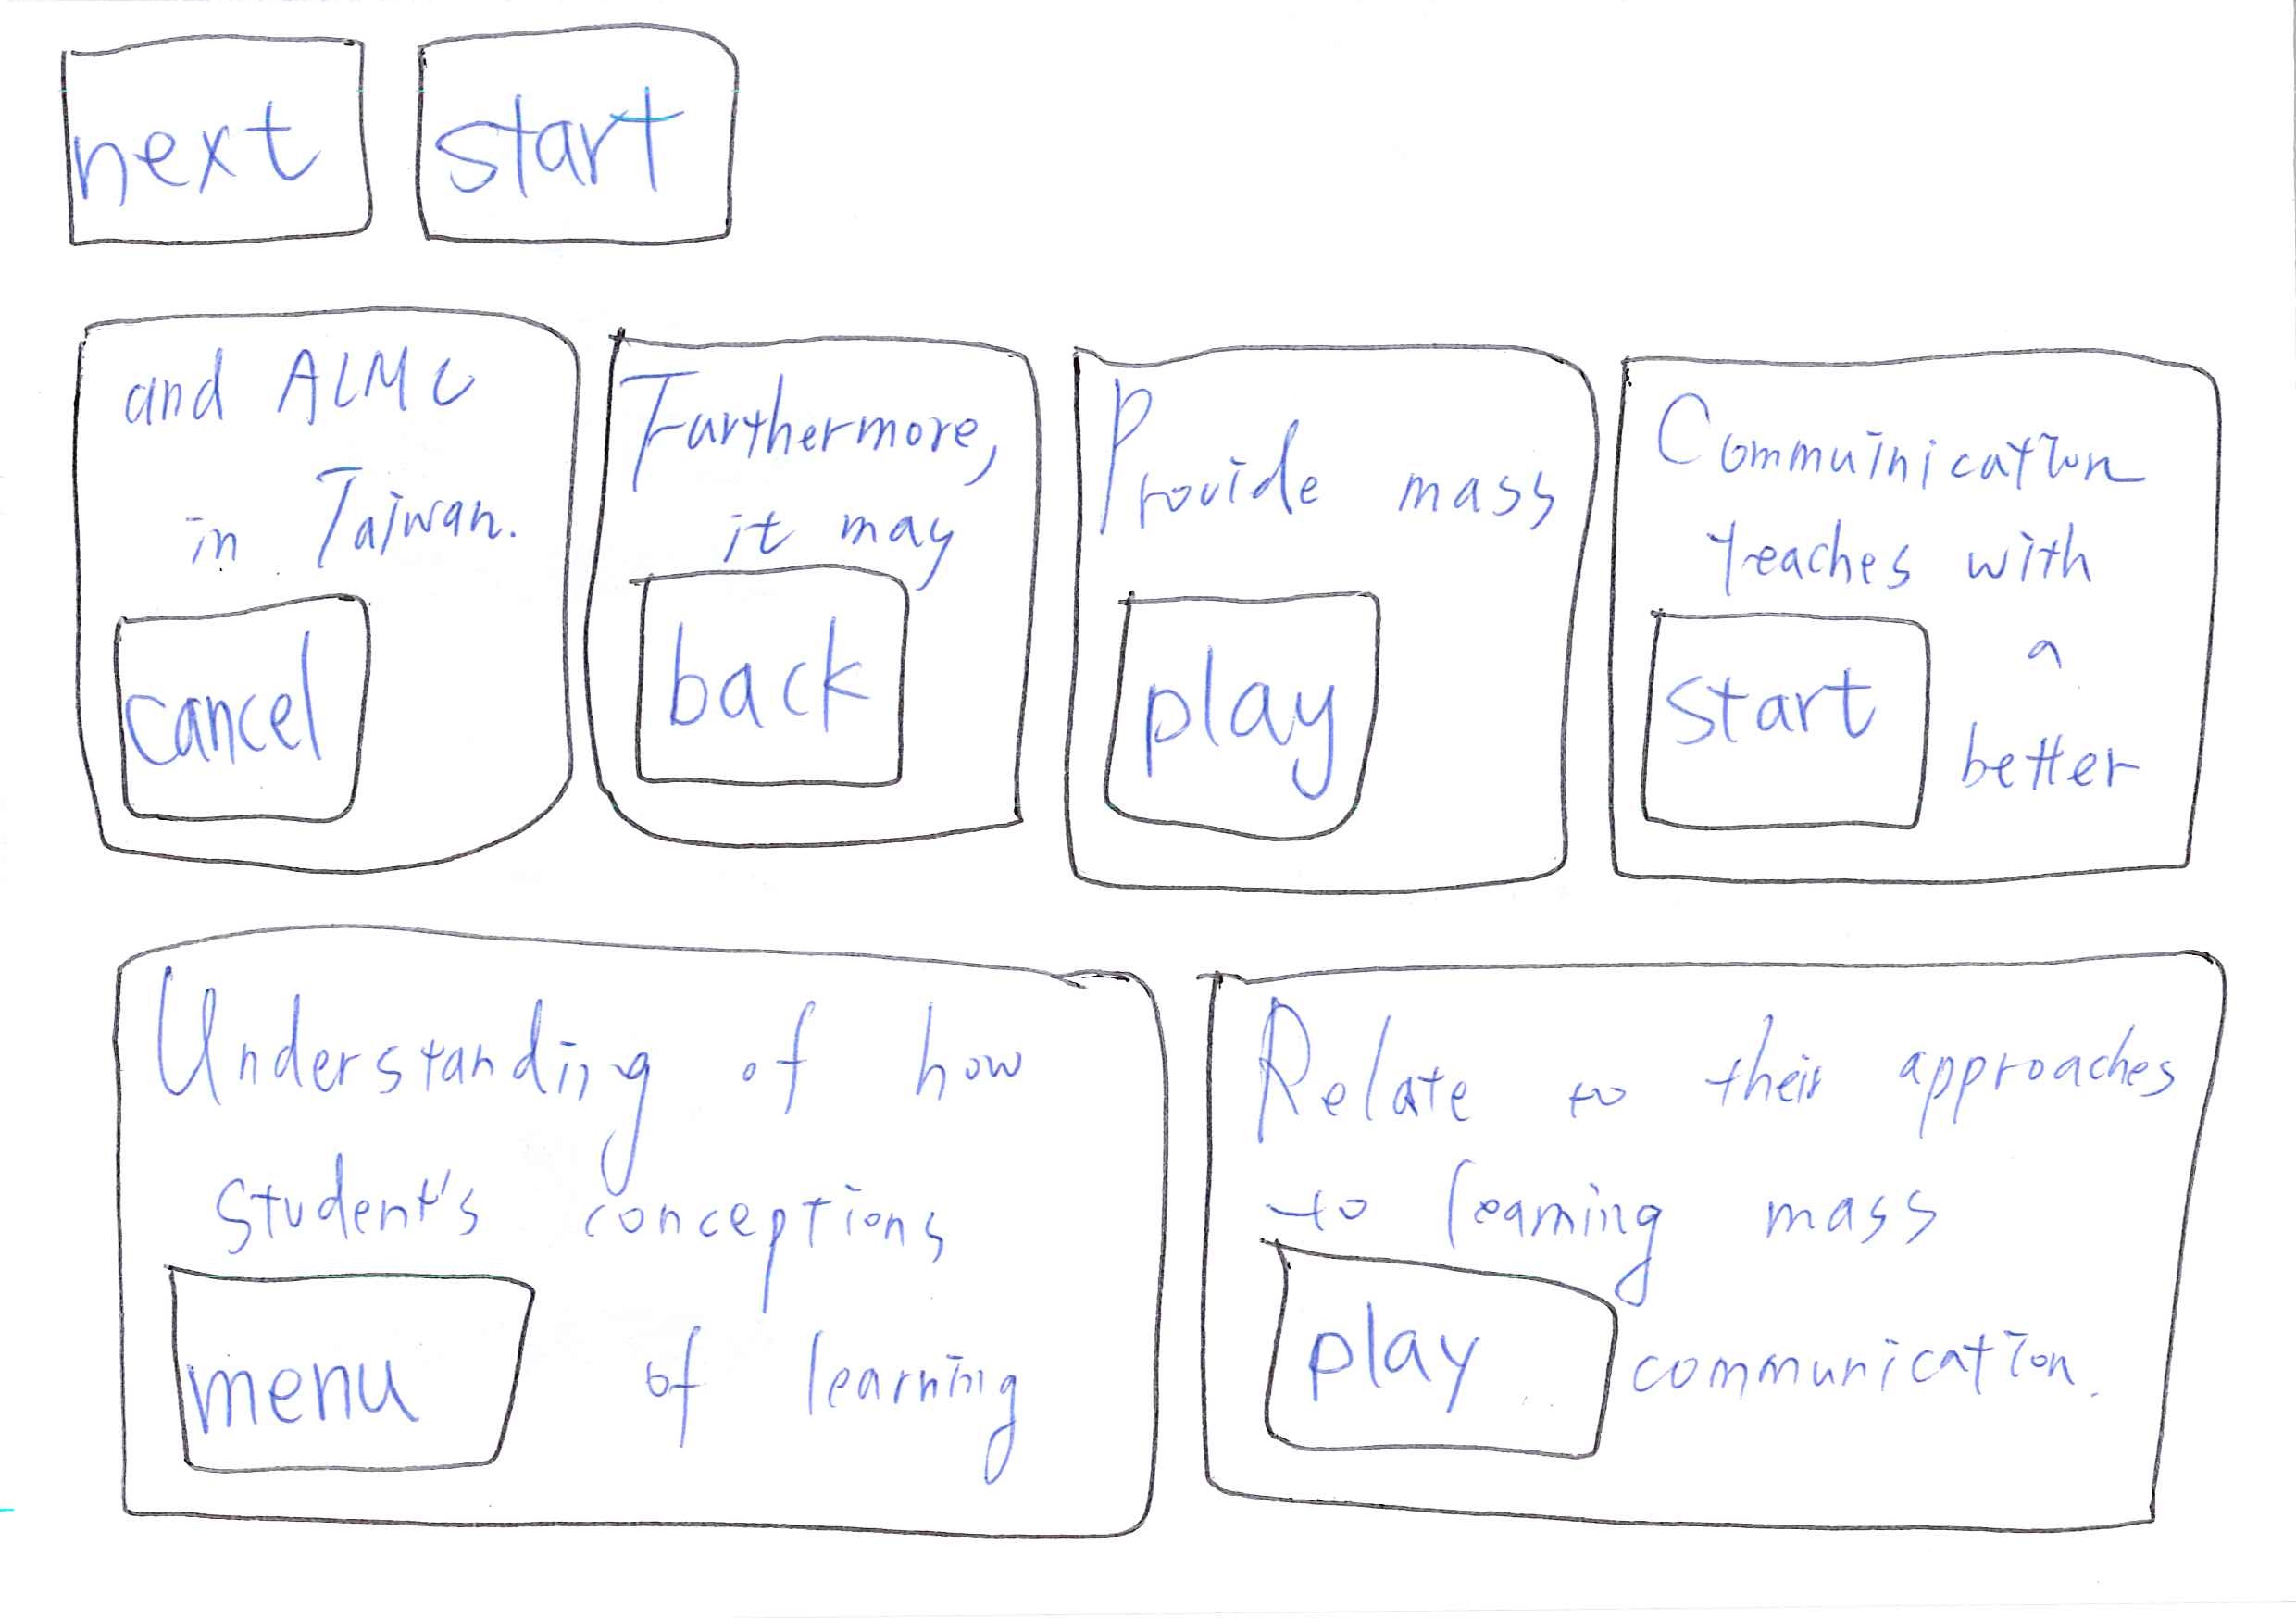 next
start
and ALMC
in Taiwan.
cancel
Furthermore,
it may
back
Provide mass
play
Commuinication
teaches with
a
start
better
Understanding of how
student's conceptions
menu
of learning
Relate to their approaches
to learning mass
play
communication.